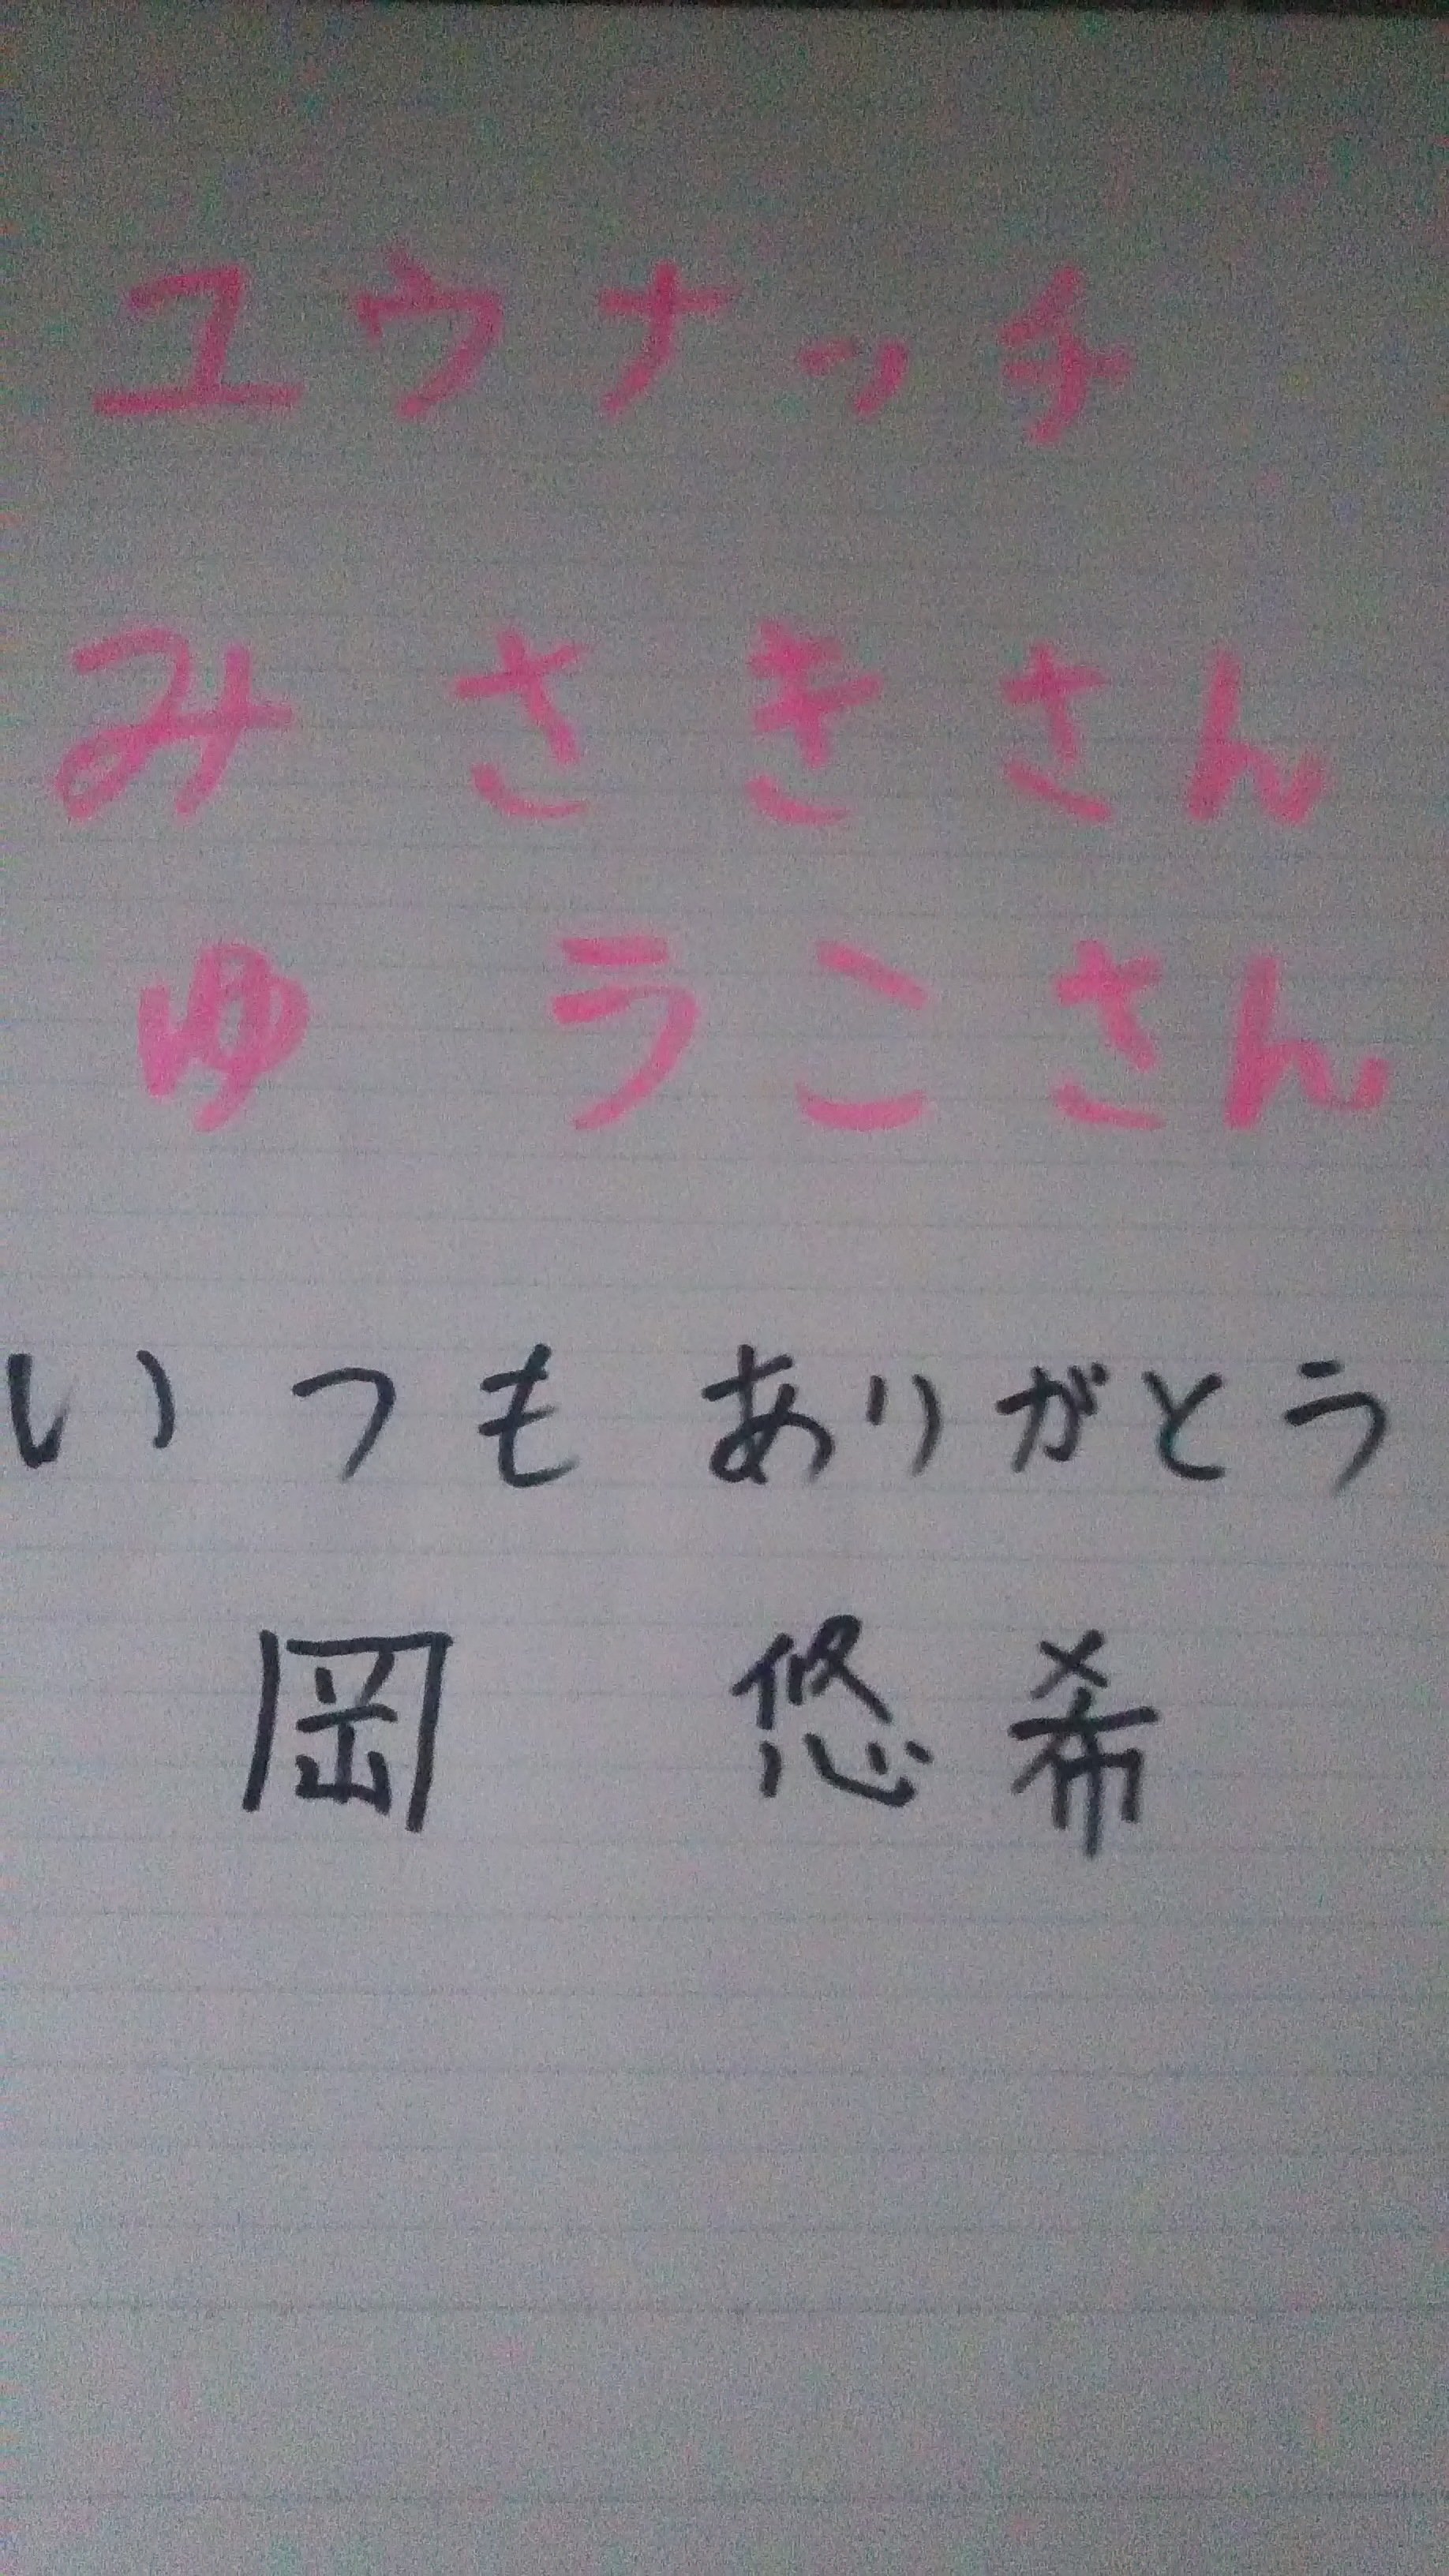 ユウナッチ
みさきさん
ゆうこさん
いつもありがとう
岡 悠希